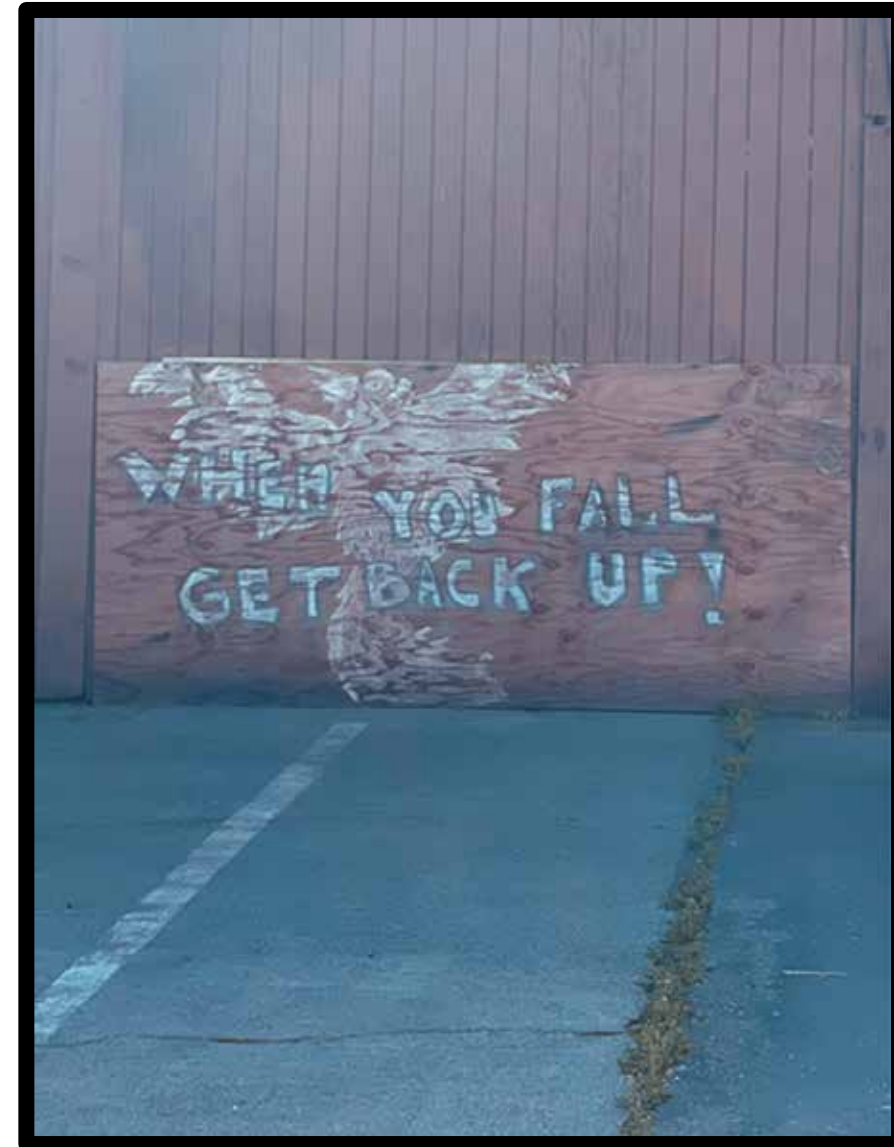 WHEN YOU FALL
GET BACK UP!